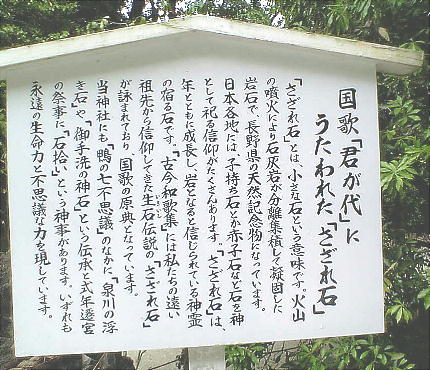 国歌「君が代」に
うたわれた「さざれ石」
「さざれ石」とは、小さな石という意味です。火山
の噴火により石灰岩が分離集積して凝固した
岩石で、長野県の天然記念物になっています。
日本各地には「子持ち石とか赤子石など石を神
として祀る信仰がたくさんあります。「さざれ石」は、
年とともに成長し、岩となると信じられている神霊
の宿る石です。「古今和歌集」には私たちの遠い
祖先から信仰してきた生石伝説の「さざれ石」
が詠まれており、国歌の原典となっています。
当神社にも「鴨の七不思議」のなかに「泉川の浮
き石」や、「御手洗の神石」という伝承と式年遷宮
の祭事に「石拾い」という神事があります。いずれも
永遠の生命力と不思議な力を現しています。